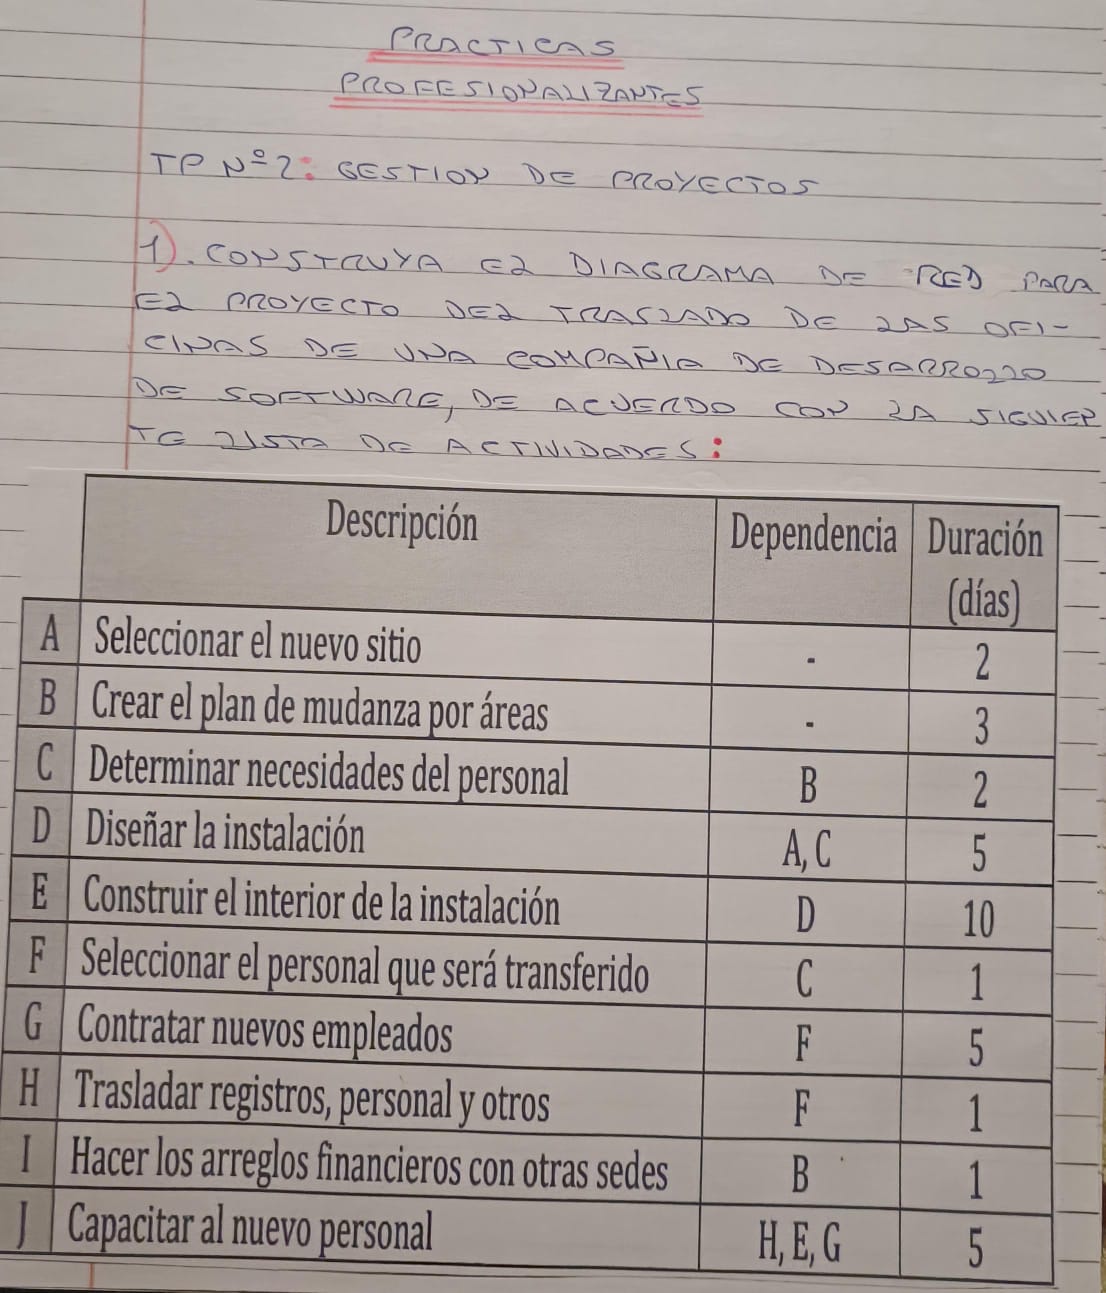 PRACTICAS
PROFESIONALIZANTES
TP Nº2: GESTION DE PROYECTOS
1). CONSTRUYA EL DIAGRAMA DE RED PARA
EL PROYECTO DEL TRASLADO DE LAS OFI-
CINAS DE UNA COMPAÑIA DE DESARROLLO
DE SOFTWARE, DE ACUERDO CON LA SIGUIEN
TE LISTA DE ACTIVIDADES:
Descripción Dependencia Duración
(días)
A Seleccionar el nuevo sitio - 2
B Crear el plan de mudanza por áreas - 3
C Determinar necesidades del personal B 2
D Diseñar la instalación A, C 5
E Construir el interior de la instalación D 10
F Seleccionar el personal que será transferido C 1
G Contratar nuevos empleados F 5
H Trasladar registros, personal y otros F 1
I Hacer los arreglos financieros con otras sedes B 1
J Capacitar al nuevo personal H, E, G 5